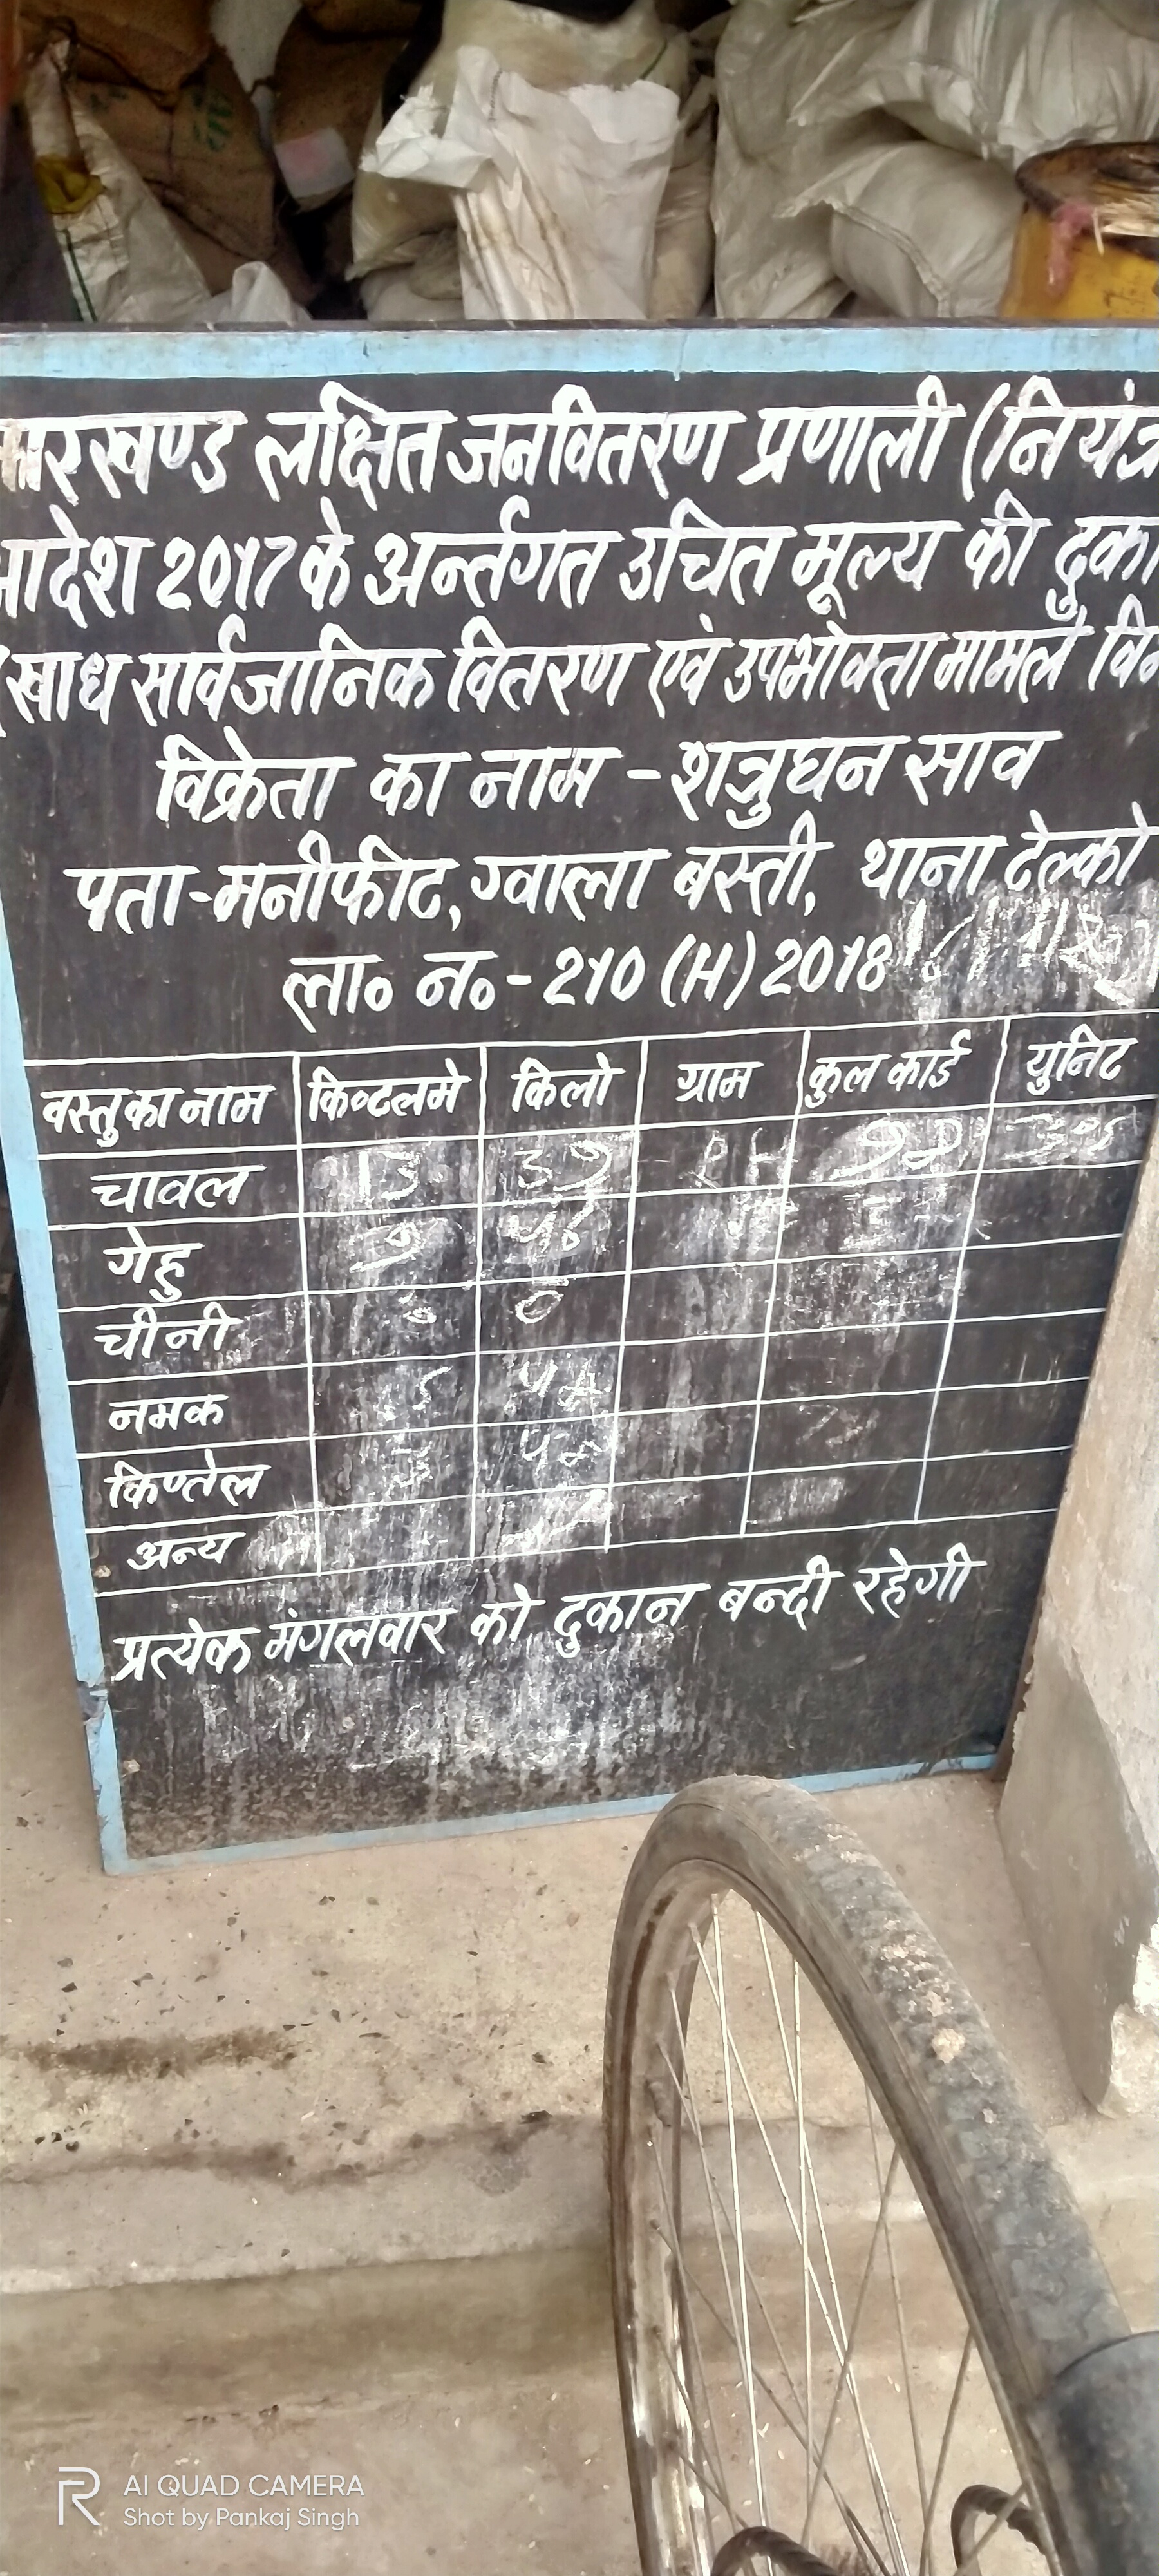 झारखण्ड लक्षित जनवितरण प्रणाली (नियंत्र
आदेश 2017 के अर्न्तगत उचित मूल्य की दुका
(खाध सार्वजानिक वितरण एवं उपभोक्ता मामले वि
विक्रेता का नाम - शत्रुघन साव
पता-मनीफीट, ग्वाला बस्ती, थाना टेल्को
ला० न०-210 (H) 2018
वस्तु का नाम किव्टलमे किलो ग्राम कुल कार्ड युनिट
चावल 13 39
गेहु
चीनी 0 0
नमक
किण्तेल
अन्य
प्रत्येक मंगलवार को दुकान बन्दी रहेगी
AI QUAD CAMERA
Shot by Pankaj Singh